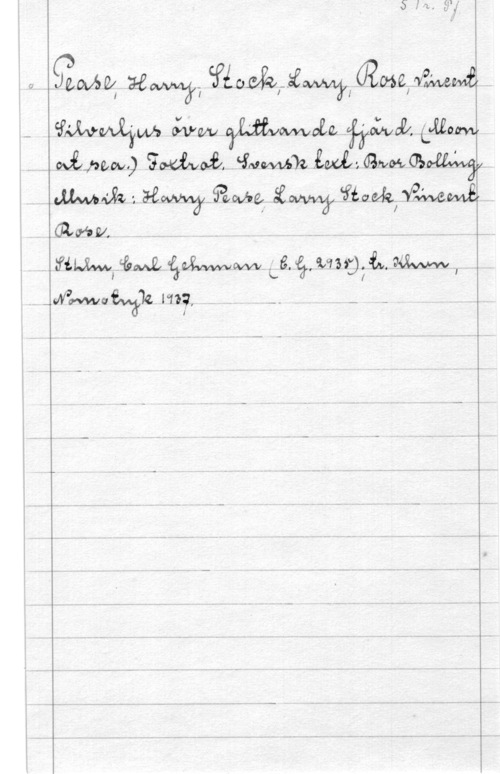 Pease, Harry, Stock, Larry, Rose, Vincent
Silverljus över glittrande fjärd. (Moon
at sea.) Foxtrot. Svensk text: Bror Bolling
Musik: Harry Pease, Larry Stock, Vincent
Rose.
Sthlm, Carl Gehrman (C. G. 2935), tr. Khvn,
Nornotryk 1937.